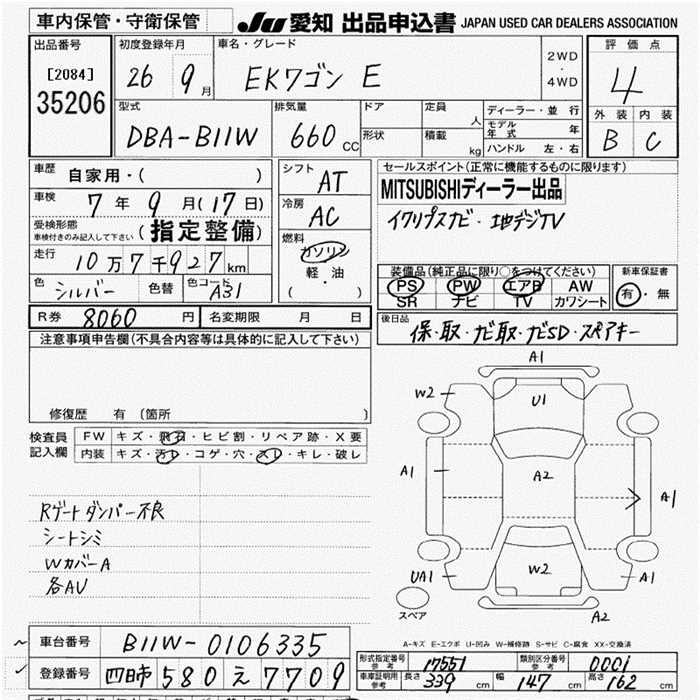 車内保管・守衛保管
JU 愛知 出品申込書 JAPAN USED CAR DEALERS ASSOCIATION
出品番号
[2084]
35206
初度登録年月
26 9月
車名・グレード
EKワゴン E
2WD
・
4WD
評価点
4
外装 内装
B C
型式
DBA-B11W
排気量
660 CC
ドア
形状
定員 人
積載 kg
ディーラー・並行
モデル年式 年
ハンドル 左・右
車歴 自家用・( )
車検 7年9月(17日)
受検形態
車検付きのみ記入して下さい (指定整備)
走行 10万7千927km
色 シルバー 色替 色コード A31
シフト AT
冷房 AC
燃料
ガソリン
軽・油
( )
セールスポイント(正常に機能するものに限ります)
MITSUBISHIディーラー出品
イクリプスナビ・地デジTV
装備品(純正品に限り○をつけてください)
PS PW エアB AW
SR ナビ TV カワシート
新車保証書
有・無
R券 8060円 名変期限 月 日
後日品
保・取・ナビ取・ナビSD・スペアキー
注意事項申告欄(不具合内容等は具体的に記入して下さい)
修復歴 有 (箇所 )
検査員記入欄
FW キズ・飛石・ヒビ割・リペア跡・X要
内装 キズ・汚レ・コゲ・穴・スレ・キレ・破レ
Rゲートダンパー不良
シートシミ
WカバーA
各AU
A1
W2
U1
A1
A2
A1
W2
UA1
A1
A2
スペア
A-キズ E-エクボ U-凹み W-補修跡 S-サビ C-腐食 XX-交換済
車台番号 B11W-0106335
登録番号 四日市 580 え 7709
形式指定番号参考 17551 類別区分番号参考 0001
車庫証明用参考 長さ 339cm 幅 147cm 高さ 162cm